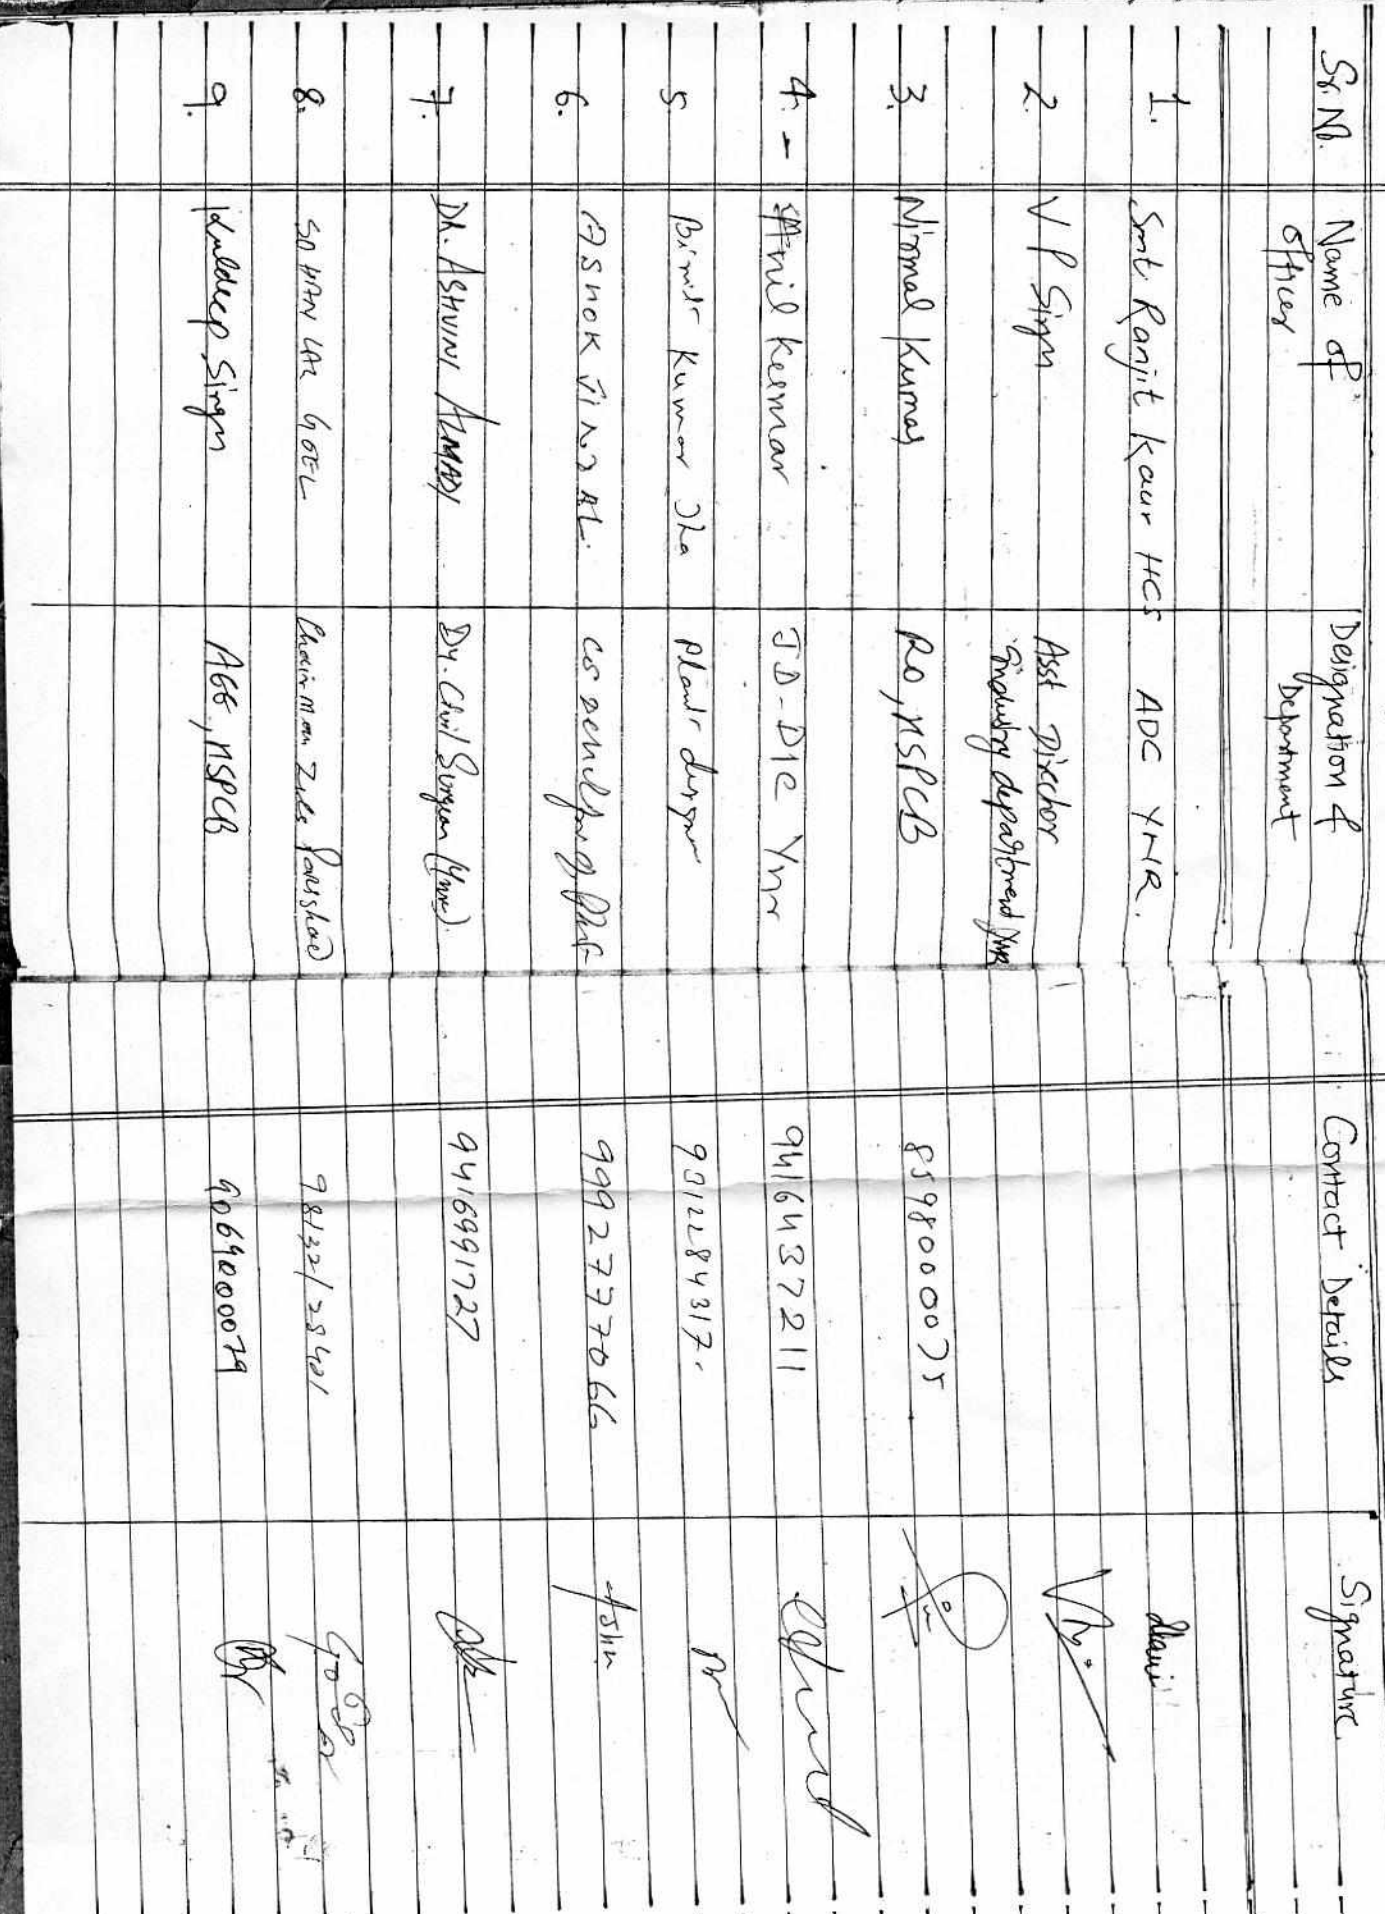 Sr. No. Name of officer Designation & Department Contact Details Signature
1. Smt. Ranjit Kaur HCS ADC YNR.
2. V P Singh Asst Director
Industry department YNR
3. Nirmal Kumar RO, HSPCB 8598000075
4. - Anil Kumar JD-DIC Ynr 9416437211
5 Bimit Kumar Jha Plant 9312284317.
6. ASHOK JINDAL. 9992777066 Ashu
7. DR. ASHVINI ALMADI Dy. Civil Surgeon (Ynr). 9416991727
8. SOHAN LAL GOEL Chairman Zila Parishad 98132/28401
9. Kuldeep Singh AEE, HSPCB 9069000079